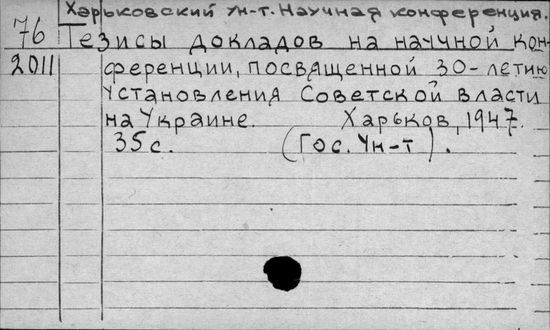 Харьковский ун-т. Научная конференция.
76 Тезисы докладов на научной кон-
2011 ференции, посвященной 30-летию
установления Советской власти
на Украине. Харьков, 1947.
35 с. (Гос. Ун-т).